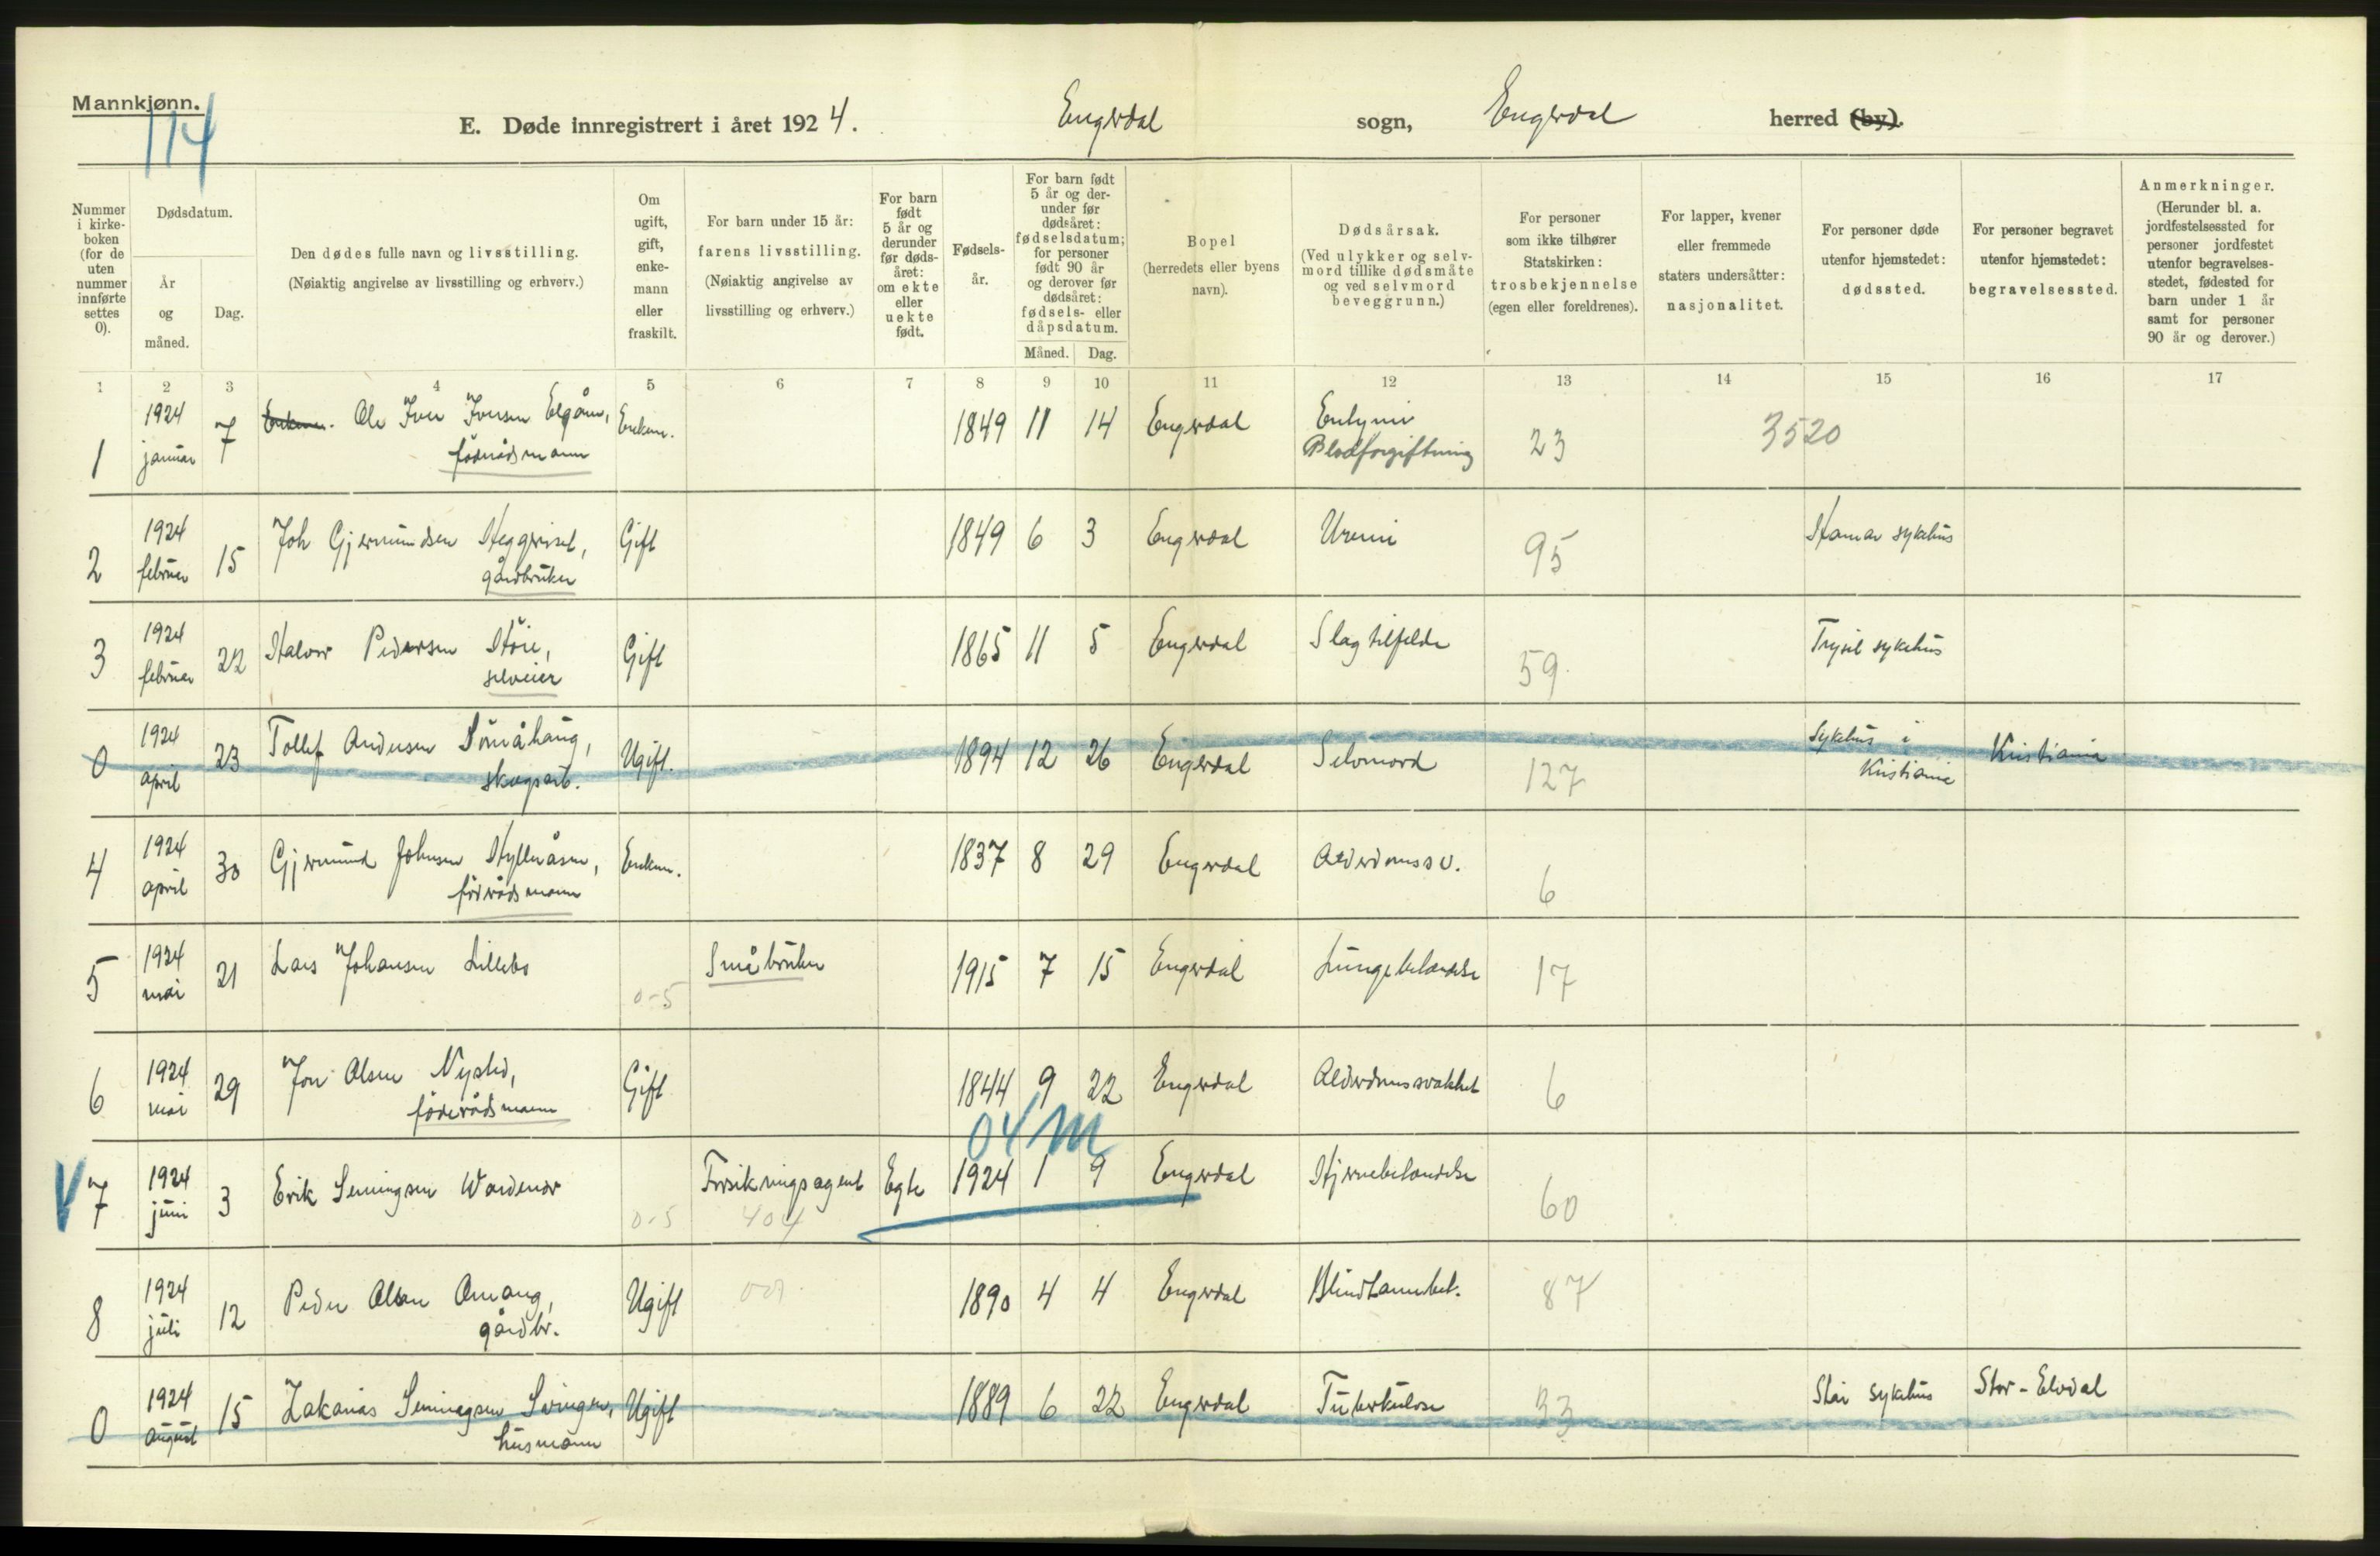 Mannkjønn.
114
E. Døde innregistrert i året 1924.
Engerdal sogn, Engerdal herred (by).
Nummer i kirke-boken (for de uten nummer innførte settes 0).
Dødsdatum.
År og måned.
Dag.
Den dødes fulle navn og livsstilling.
(Nøiaktig angivelse av livsstilling og erhverv.)
Om ugift, gift, enke-mann eller fraskilt.
For barn under 15 år: farens livsstilling.
(Nøiaktig angivelse av livsstilling og erhverv.)
For barn født 5 år og derunder før døds-året: om ekte eller uekte født.
Fødsels-år.
For barn født 5 år og der-under før dødsåret: fødselsdatum; for personer født 90 år og derover før dødsåret: fødsels- eller dåpsdatum.
Måned. Dag.
Bopel (herredets eller byens navn).
Dødsårsak.
(Ved ulykker og selv-mord tillike dødsmåte og ved selvmord beveggrunn.)
For personer som ikke tilhører Statskirken: trosbekjennelse (egen eller foreldrenes).
For lapper, kvener eller fremmede staters undersåtter: nasjonalitet.
For personer døde utenfor hjemstedet: dødssted.
For personer begravet utenfor hjemstedet: begravelsessted.
Anmerkninger.
(Herunder bl. a. jordfestelsessted for personer jordfestet utenfor begravelses-stedet, fødested for barn under 1 år samt for personer 90 år og derover.)
1 2 3 4 5 6 7 8 9 10 11 12 13 14 15 16 17
1 1924 januar 7 Ole Iver Iversen Elgåen, Enkem. 1849 11 14 Engerdal
föderådsmann Blodforgiftning 23 3520
2 1924 februar 15 Joh Gjermundsen Heggeriset, Gift 1849 6 3 Engerdal Uremi 95 Hamar sykehus
gårdbruker
3 1924 februar 22 Halvor Pedersen Støie, Gift 1865 11 5 Engerdal Slagtilfelde 59 Trysil sykehus
selveier
0 1924 april 23 Tollef Andersen Småhaug, Ugift. 1894 12 26 Engerdal Selvmord 127 Sykehus i Kristiania Kristiania
skogsarb.
4 1924 april 30 Gjermund Johnsen Hylleråsen, Enkem. 1837 8 29 Engerdal Alderdomssv. 6
föderådsmann
5 1924 mai 21 Lars Johansen Lillebo 0-5 Småbruker 1915 7 15 Engerdal Lungebetændelse 17
6 1924 mai 29 Jon Olsen Nysted, Gift 1844 9 22 Engerdal Alderdomssvakhet 6
föderådsmann
04 m
V 7 1924 juni 3 Erik Semingsen Wardenær 0-5 Forsikringsagent 404 Egte 1924 1 9 Engerdal Hjernebetændelse 60
8 1924 juli 12 Peder Olsen Omang, Ugift 1890 4 4 Engerdal Blindtarmbet. 87
gårdbr.
0 1924 august 15 Zakarias Semingsen Svingen, Ugift 1889 6 22 Engerdal Tuberkulose 33 Stai sykehus Stor-Elvdal
husmann